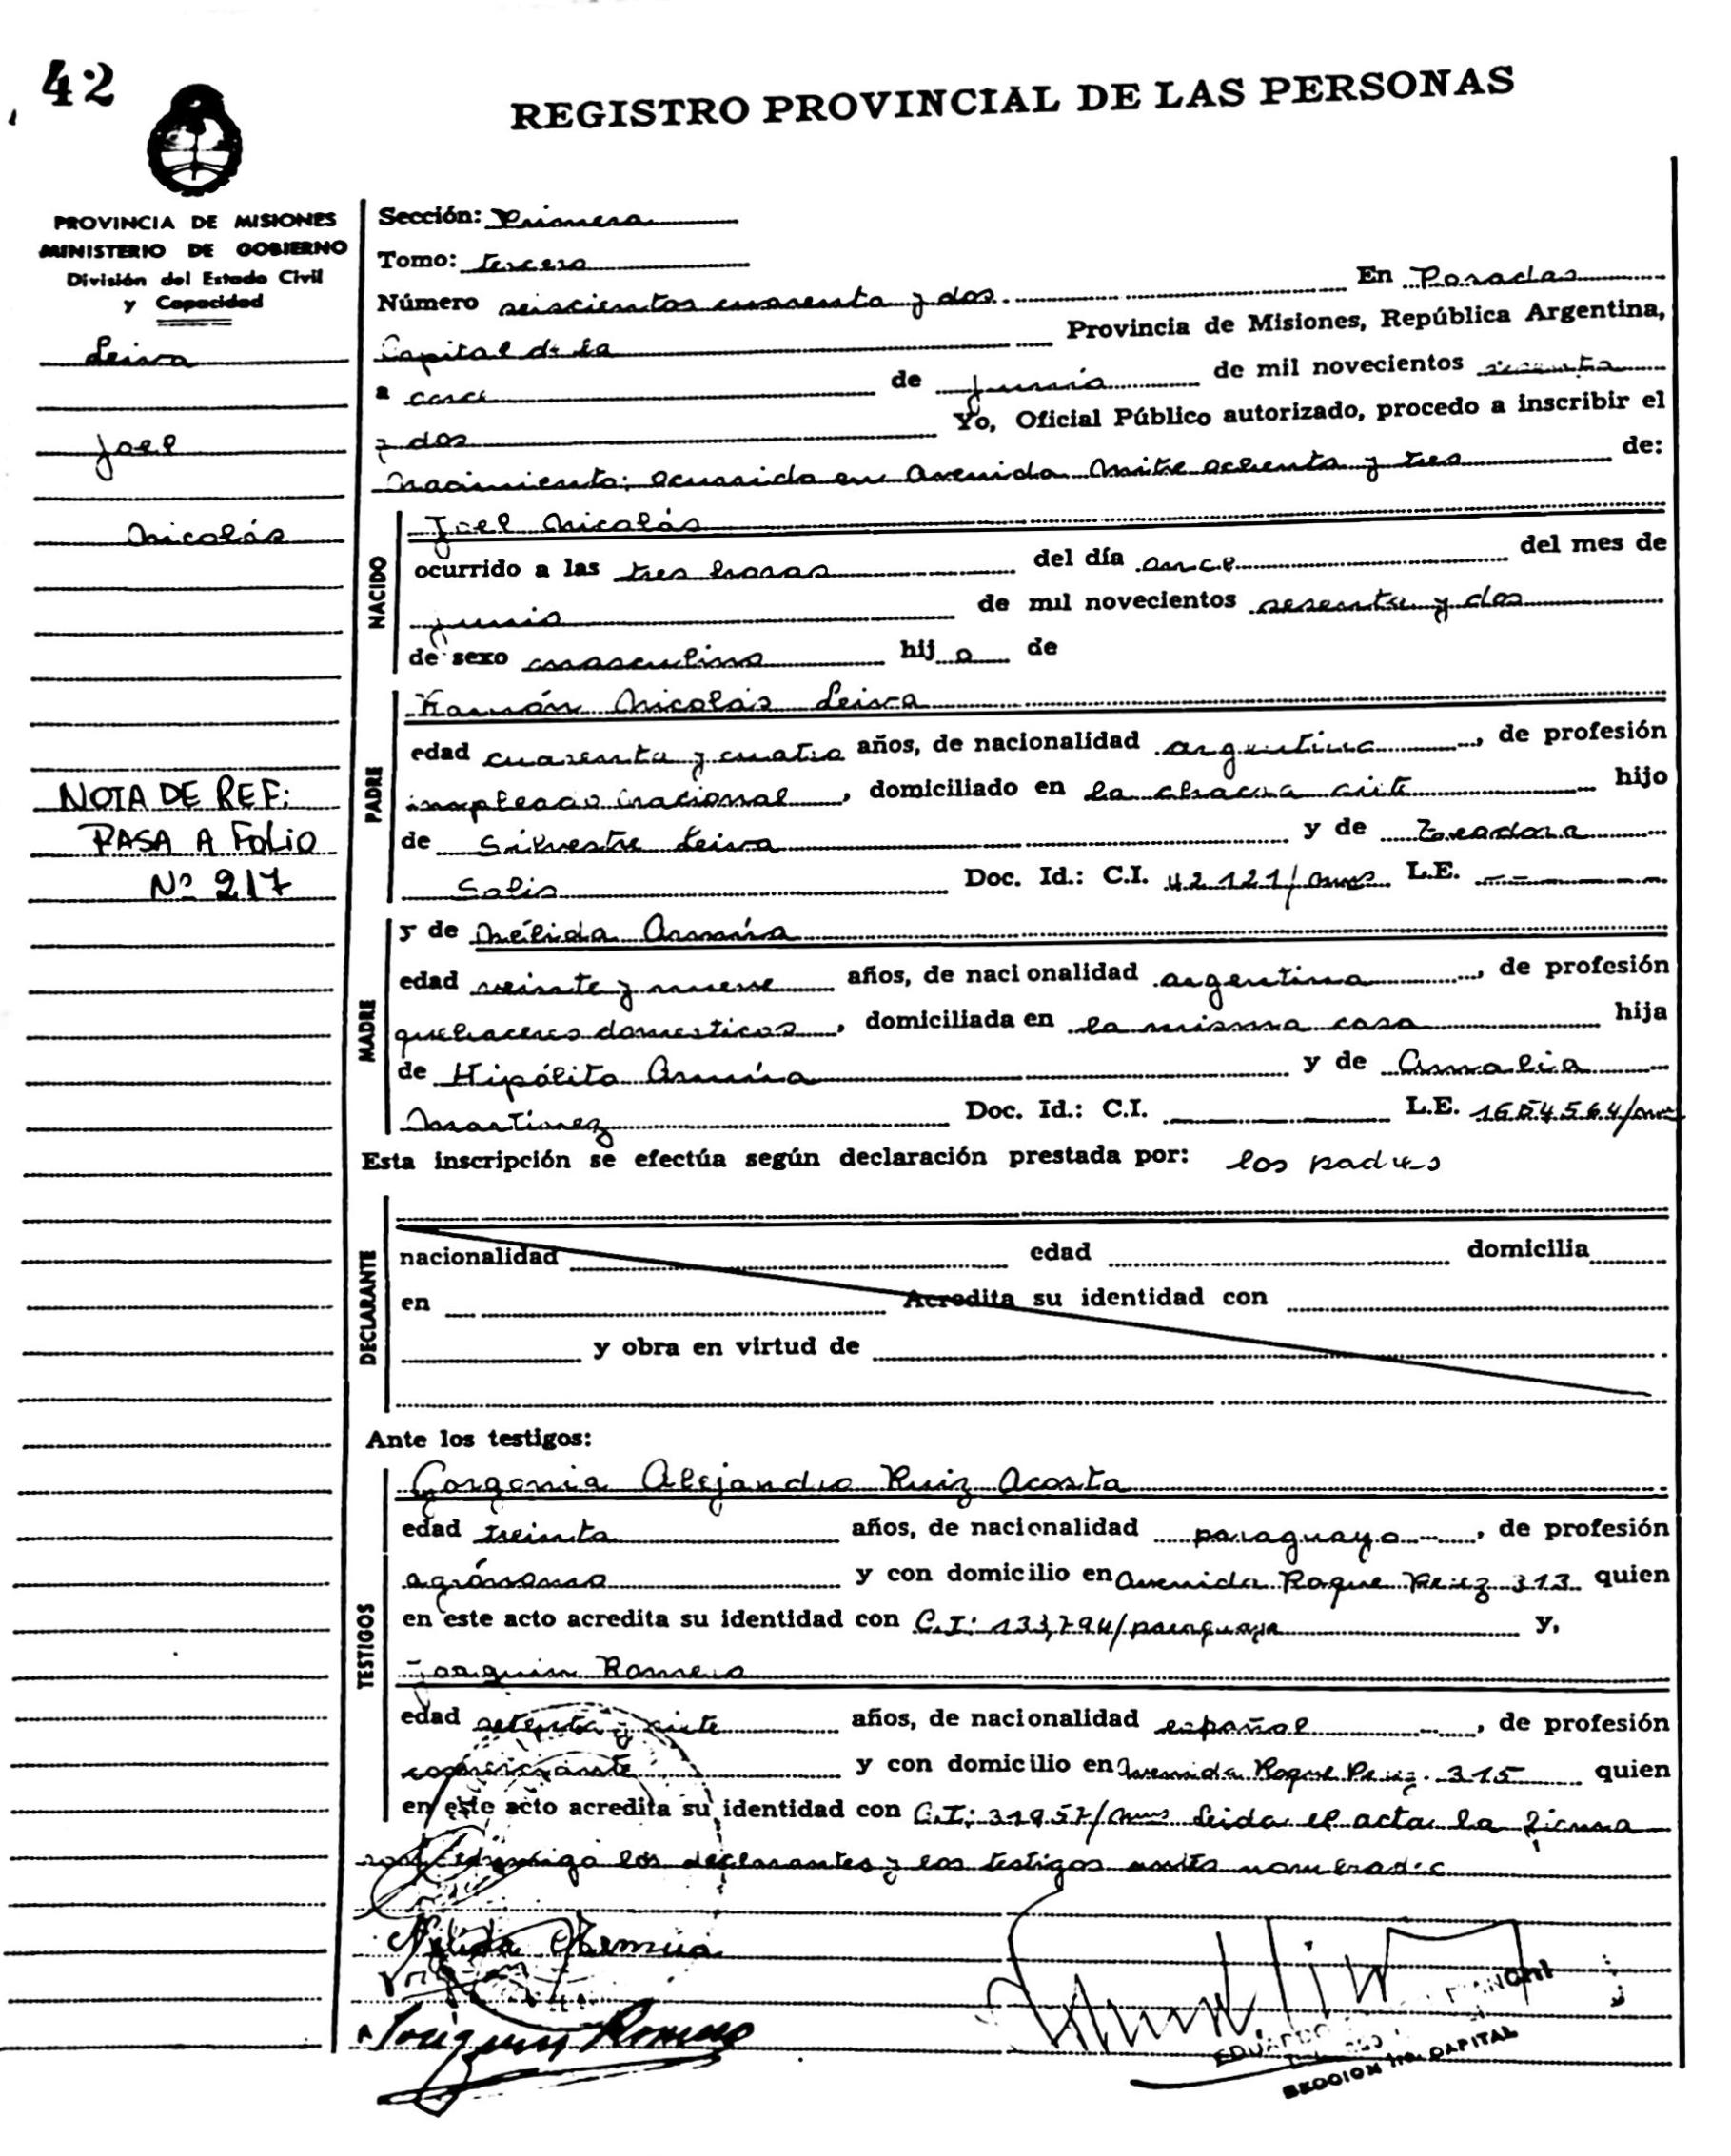 42
REGISTRO PROVINCIAL DE LAS PERSONAS
PROVINCIA DE MISIONES
MINISTERIO DE GOBIERNO
División del Estado Civil
y Capacidad
Leiva
Joel
Nicolás
NOTA DE REF:
PASA A FOLIO
Nº 217
Sección: Primera
Tomo: tercero
Número seiscientos cuarenta y dos. En Posadas
Capital de la Provincia de Misiones, República Argentina,
a de junio de mil novecientos sesenta
y dos Yo, Oficial Público autorizado, procedo a inscribir el
Nacimiento: ocurrido en Avenida Mitre ochenta y tres de:
NACIDO
Joel Nicolás
ocurrido a las tres horas del día once del mes de
junio de mil novecientos sesenta y dos
de sexo masculino hijo de
PADRE
Nicolás Leiva
edad cuarenta y cuatro años, de nacionalidad argentina, de profesión
empleado nacional, domiciliado en la chacra siete hijo
de Silvestre Leiva y de Teodora
Solis Doc. Id.: C.I. 42.121/Mnes L.E. --
MADRE
y de Nélida
edad veinte y nueve años, de nacionalidad argentina, de profesión
quehaceres domesticos, domiciliada en la misma casa hija
de Hipólito y de Amalia
Martinez Doc. Id.: C.I. L.E. 1654564/
Esta inscripción se efectúa según declaración prestada por: los padres
DECLARANTE
nacionalidad edad domicilia
en Acredita su identidad con
y obra en virtud de
Ante los testigos:
TESTIGOS
Alejandro Ruiz Acosta
edad treinta años, de nacionalidad paraguayo, de profesión
agrónomo y con domicilio en Avenida Roque Perez 313 quien
en este acto acredita su identidad con C.I: 133,794/paraguaya y,
Joaquin Romero
edad setenta y siete años, de nacionalidad español, de profesión
comerciante y con domicilio en Avenida Roque Perez 315 quien
en este acto acredita su identidad con C.I: 31957/Mnes Leida el acta la firman
conmigo los declarantes y los testigos
Nélida
Joaquin Romero
EDUARDO
SECCION 1ra. CAPITAL